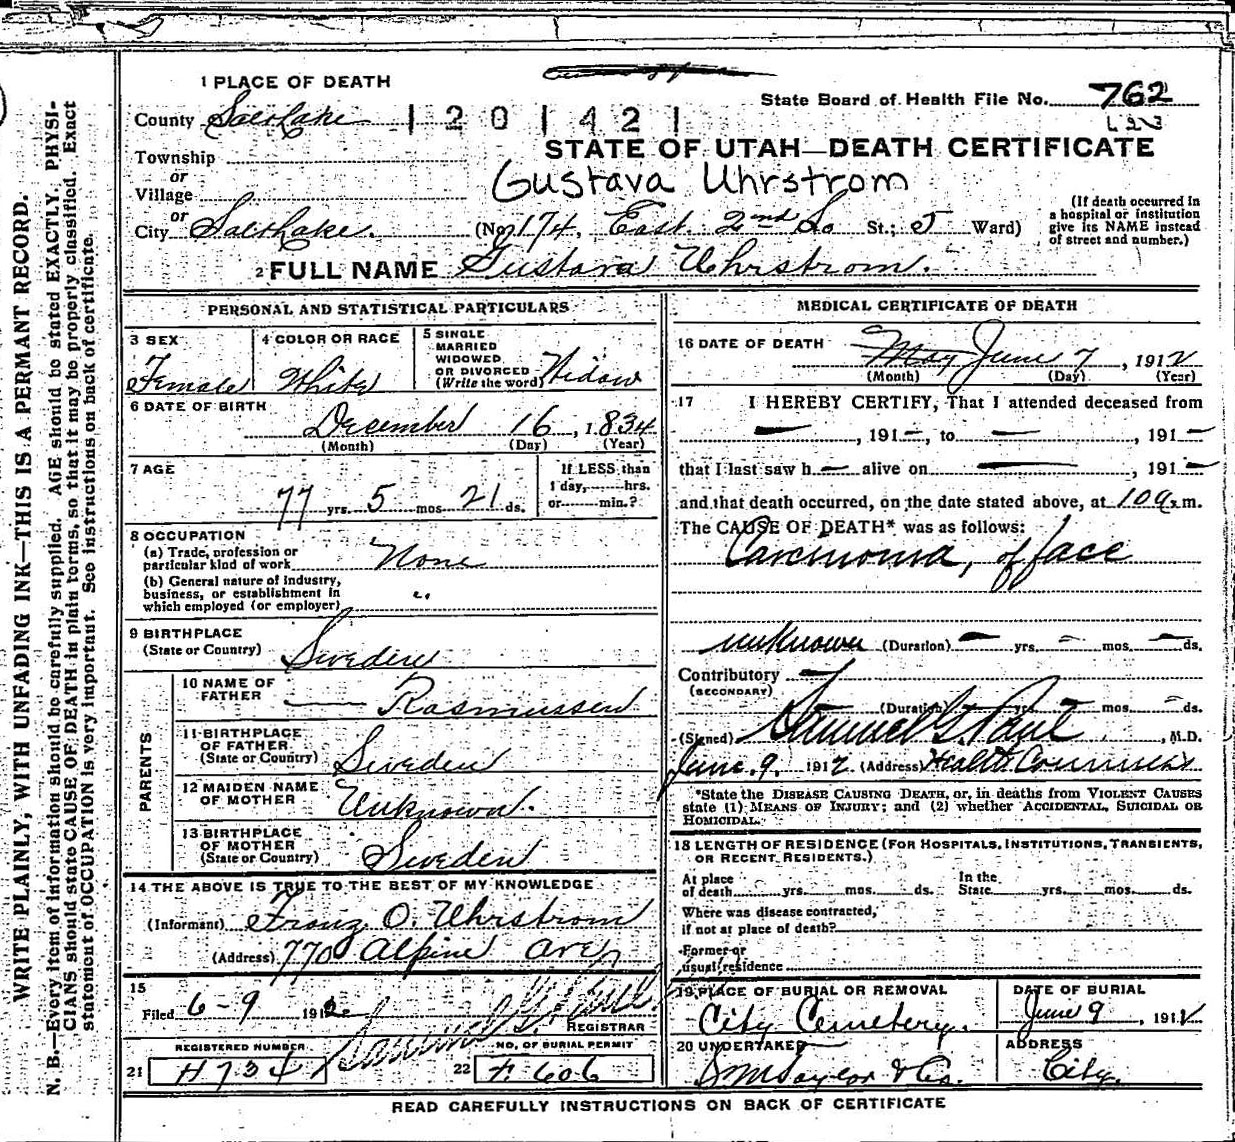 1 PLACE OF DEATH
County Salt Lake
1 2 0 1 4 2 1
State Board of Health File No. 762
STATE OF UTAH—DEATH CERTIFICATE
Township
or
Village
Gustava Uhrstrom
or
City Salt Lake. (No. 174. East 2nd So St.; 5 Ward)
(If death occurred in
a hospital or institution
give its NAME instead
of street and number.)
2 FULL NAME Gustava Uhrstrom.
PERSONAL AND STATISTICAL PARTICULARS
3 SEX
Female
4 COLOR OR RACE
White
5 SINGLE
MARRIED
WIDOWED
OR DIVORCED
(Write the word) Widow
6 DATE OF BIRTH
December 16, 1834
(Month) (Day) (Year)
7 AGE
77 yrs. 5 mos. 21 ds.
If LESS than
1 day, hrs.
or min.?
8 OCCUPATION
(a) Trade, profession or
particular kind of work None
(b) General nature of industry,
business, or establishment in
which employed (or employer)
9 BIRTHPLACE
(State or Country) Sweden
PARENTS
10 NAME OF
FATHER — Rasmussen
11 BIRTHPLACE
OF FATHER
(State or Country) Sweden
12 MAIDEN NAME
OF MOTHER Unknown.
13 BIRTHPLACE
OF MOTHER
(State or Country) Sweden
14 THE ABOVE IS TRUE TO THE BEST OF MY KNOWLEDGE
(Informant) Franz O. Uhrstrom
(Address) 770 Alpine Ave
15
Filed 6-9 1912.
REGISTRAR
REGISTERED NUMBER
21 H734
NO. OF BURIAL PERMIT
22 F. 606
MEDICAL CERTIFICATE OF DEATH
16 DATE OF DEATH May June 7, 1912
(Month) (Day) (Year)
17 I HEREBY CERTIFY, That I attended deceased from
—, 191—, to —, 191—
that I last saw h— alive on —, 191—
and that death occurred, on the date stated above, at 10 a. m.
The CAUSE OF DEATH* was as follows:
Carcinoma, of face
unknown (Duration) — yrs. — mos. — ds.
Contributory —
(SECONDARY)
(Duration) yrs. mos. — ds.
(Signed) Samuel G. Paul, M.D.
June 9. 1912 (Address) Health
*State the DISEASE CAUSING DEATH, or, in deaths from VIOLENT CAUSES
state (1) MEANS OF INJURY; and (2) whether ACCIDENTAL, SUICIDAL OR
HOMICIDAL.
18 LENGTH OF RESIDENCE (FOR HOSPITALS, INSTITUTIONS, TRANSIENTS,
OR RECENT RESIDENTS.)
At place
of death yrs. mos. ds.
In the
State yrs. mos. ds.
Where was disease contracted,
if not at place of death?
Former or
usual residence
19 PLACE OF BURIAL OR REMOVAL
City Cemetery.
DATE OF BURIAL
June 9, 1912
20 UNDERTAKER
S M Taylor & Co.
ADDRESS
City.
READ CAREFULLY INSTRUCTIONS ON BACK OF CERTIFICATE
WRITE PLAINLY, WITH UNFADING INK—THIS IS A PERMANT RECORD.
N. B.—Every item of information should be carefully supplied. AGE should be stated EXACTLY. PHYSI-
CIANS should state CAUSE OF DEATH in plain terms, so that it may be properly classified. Exact
statement of OCCUPATION is very important. See instructions on back of certificate.